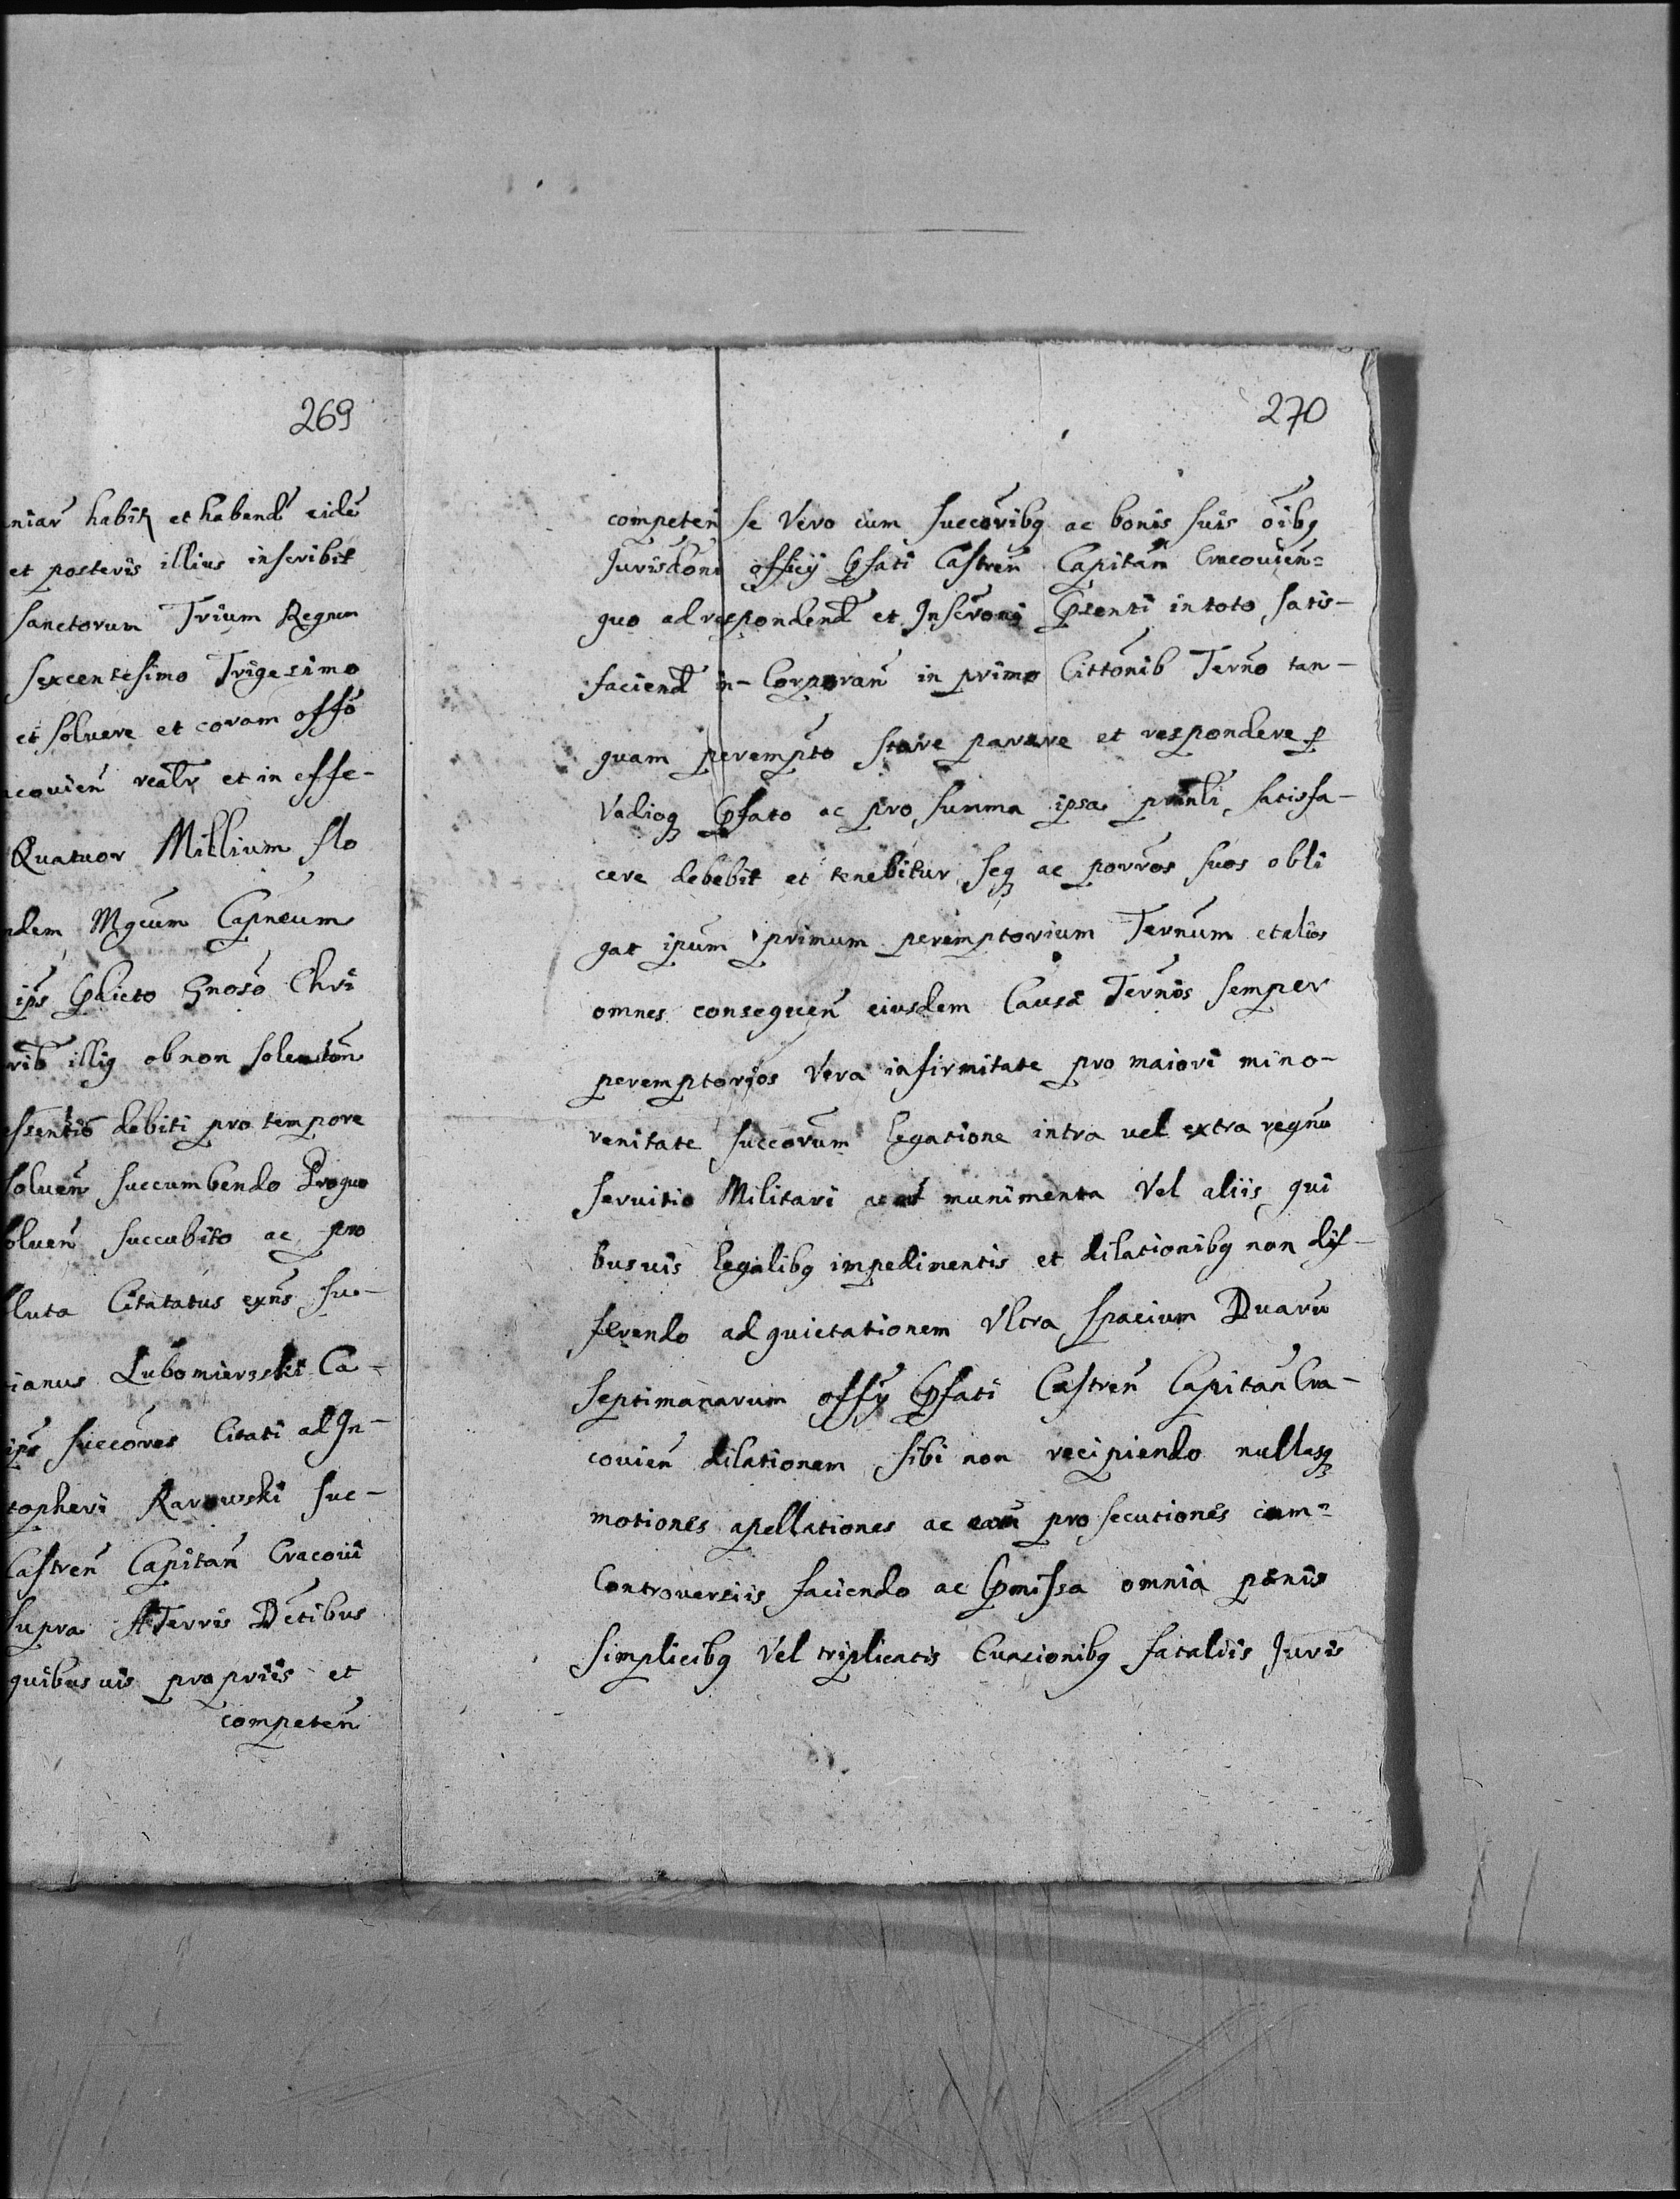 269
niar habit et habend eide
et posteris illius inscribit
sanctorum Trium Regum
sexcentesimo Trigesimo
et soluere et coram offo
acouien realr et in effe-
Quatuor Millium flo
ndem Mgcum Capneum
ips Pdicto Gnoso Chri
rib illiq ob non soluton
essentis debiti pro tempore
soluen succumbendo Proquo
oluen succubito ac pro
luta Citatatus exns su-
tianus Lubomierski Ca-
ips succores Citati ad In-
topheri Rarowski suc-
Castren Capitan Cracoui
supra A Terris Dctibus
quibusuis propriis et
competen
270
competen se Vero cum succoribq ac bonis suis oibq
Jurisdoni officy Pfati Castren Capitan Cracouien=
quo ad respondend et Inscroni Psenti in toto satis-
faciend in- Corporan in primo Cittonib Terno tan-
quam perempto stare parere et respondere p
Vadioq Pfato ac pro summa ipsa prinli satisfa-
cere debebit et tenebitur seq ac porros suos obli
gat ipum primum peremptorium Ternum et alios
omnes consequen eiusdem Causa Ternos semper
peremptorios Vera infirmitate pro maiori mino-
renitate succorum legatione intra uel extra regnu
seruitio Militari ac ad munimenta Vel aliis qui
busuis legalibq impedimentis et dilationibq non dif-
ferendo ad quietationem Vltra spacium Duaru
septimanarum offy Pfati Castren Capitan Cra-
couien dilationem sibi non recipiendo nullasq
motiones apellationes ac earu prosecutiones cum=
Controuersiis faciendo ac Pmissa omnia penis
simplicibq Vel triplicatis Euasionibq fataliis Juris